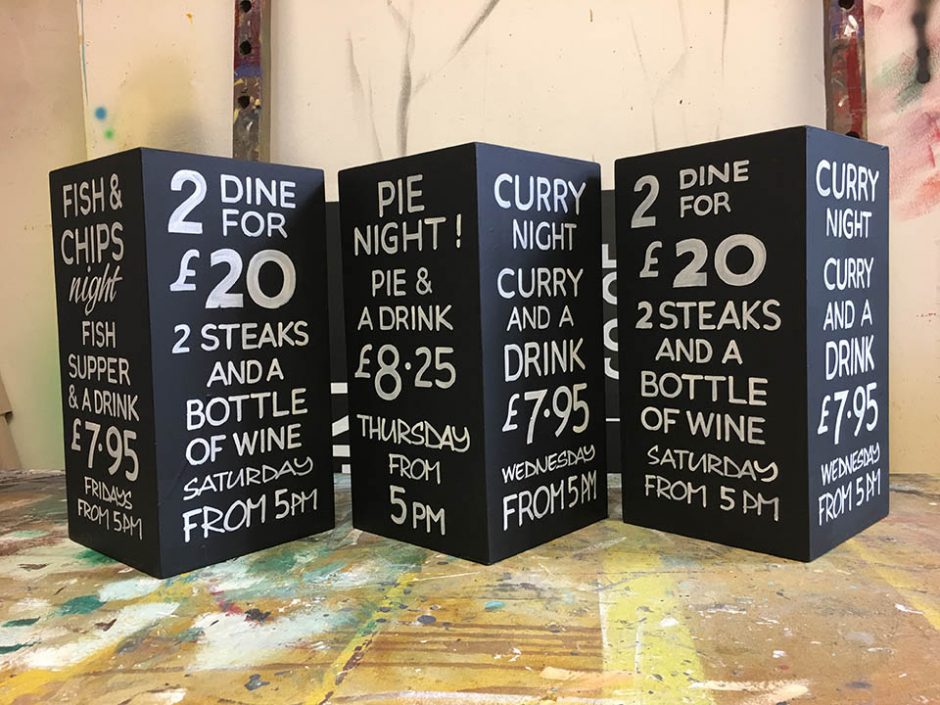 FISH &
CHIPS
night
FISH
SUPPER
& A DRINK
£7.95
FRIDAYS
FROM 5PM
2 DINE
FOR
£20
2 STEAKS
AND A
BOTTLE
OF WINE
SATURDAY
FROM 5PM
PIE
NIGHT!
PIE &
A DRINK
£8.25
THURSDAY
FROM
5PM
CURRY
NIGHT
CURRY
AND A
DRINK
£7.95
WEDNESDAY
FROM 5PM
2 DINE
FOR
£20
2 STEAKS
AND A
BOTTLE
OF WINE
SATURDAY
FROM 5PM
CURRY
NIGHT
CURRY
AND A
DRINK
£7.95
WEDNESDAY
FROM 5PM